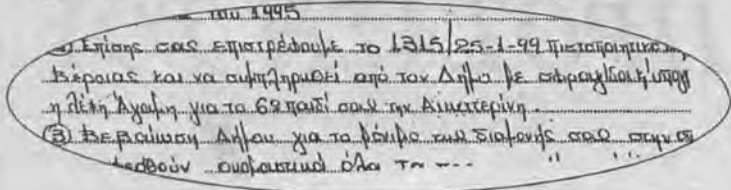 του 1995
2) Επίσης σας επιστρέφουμε το 1315/25-1-99 πιστοποιητικό
Βέροιας και να συμπληρωθεί από τον Δήμο με σφραγίδα κ' υπογ
η λέξη Άγαμη για το 6ο παιδί σας την Αικατερίνη
3) Βεβαίωση Δήμου για το μόνιμο της διαμονής σας στην
ονομαστικά όλα τα